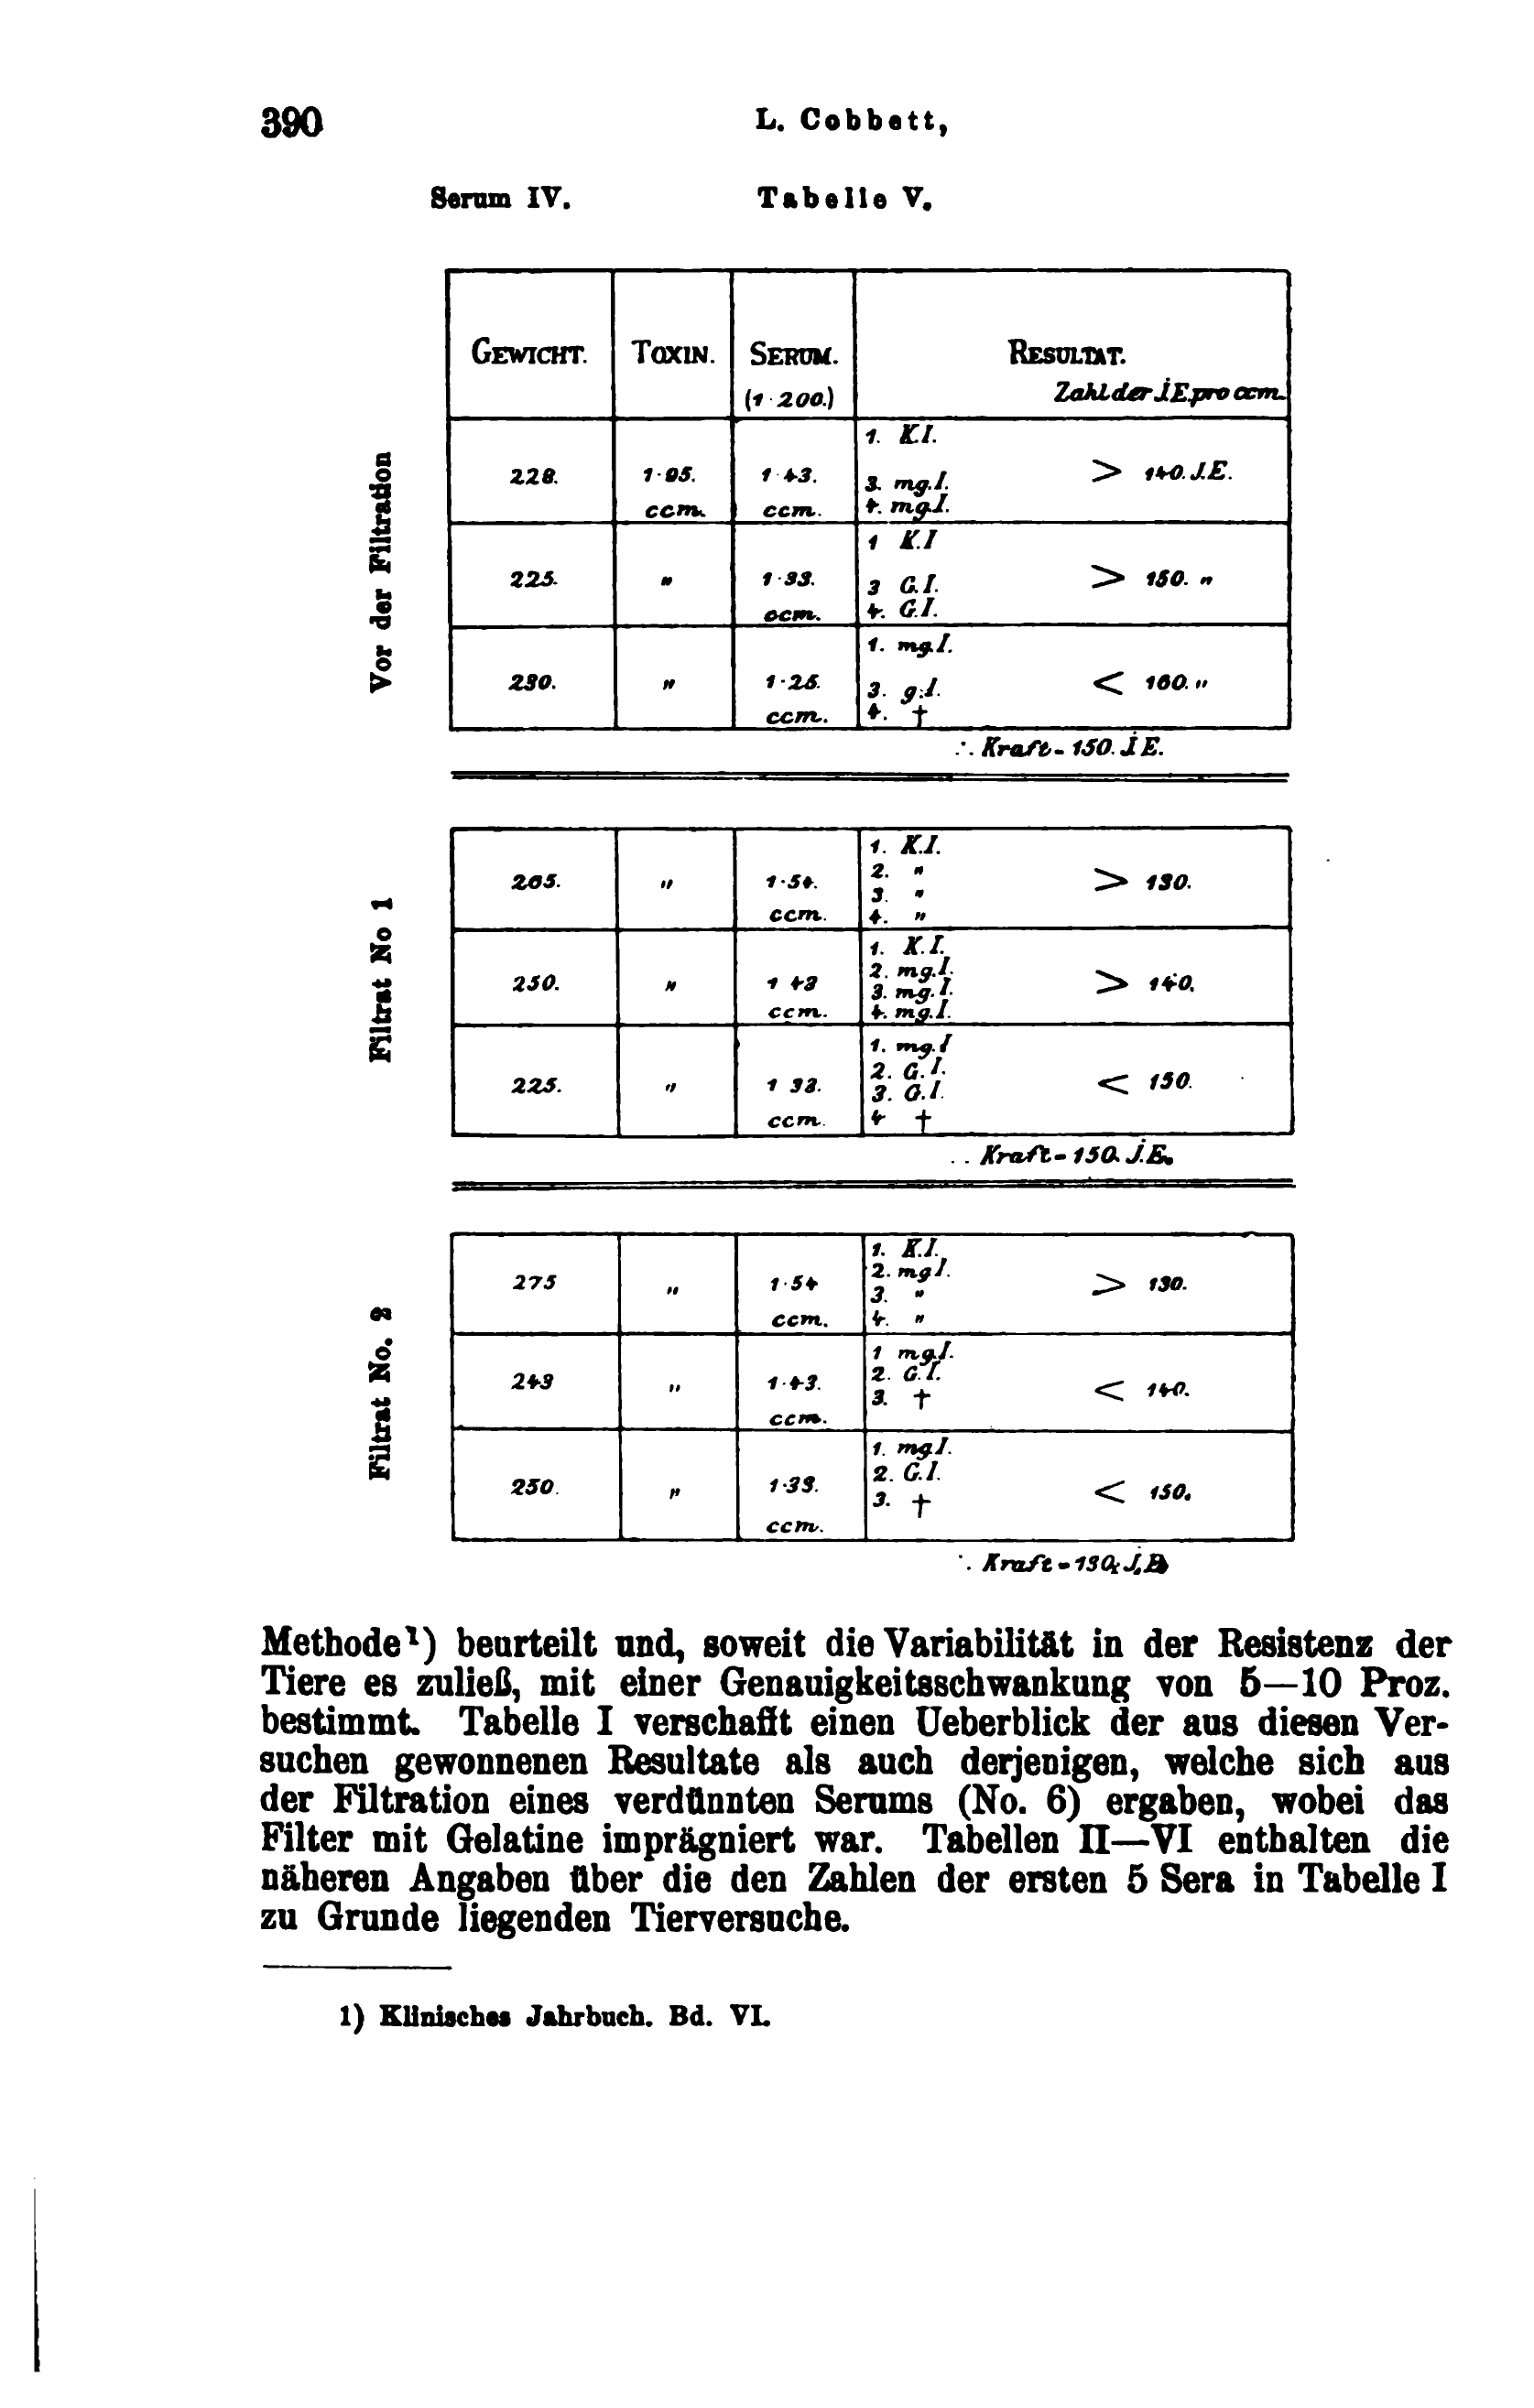 390
L. Cobbett,
Serum IV. Tabelle V.
GEWICHT. TOXIN. SERUM. RESULTAT.
(1·200.) Zahl der I.E. pro ccm.
Vor der Filtration
1. K.I.
228. 1·05. 1·43. 3. mg.I. > 140. J.E.
ccm. ccm. 4. mg.I.
1 K.I
225. " 1·33. 3 G.I. > 150. "
ccm. 4. G.I.
1. mg.I.
230. " 1·25. 3. g.I. < 160. "
ccm. 4. †
∴ Kraft - 150. I.E.
Filtrat No 1
1. K.I.
265. " 1·54. 2. " > 130.
3. "
ccm. 4. "
1. K.I.
250. " 1 43 2. mg.I. > 140.
3. mg.I.
ccm. 4. mg.I.
1. mg.I
225. " 1 33. 2. G.I. < 150.
3. G.I.
ccm. 4 †
.. Kraft - 150. J.E.
Filtrat No. 2
1. K.I.
275 " 1·54 2. mgI. > 130.
3. "
ccm. 4. "
1 mg.I.
243 " 1·43. 2. G.I. < 140.
ccm. 3. †
1. mgI.
250. " 1·33. 2. G.I. < 150.
3. †
ccm.
∴ Kraft - 130. J.E.
Methode¹) beurteilt und, soweit die Variabilität in der Resistenz der
Tiere es zuließ, mit einer Genauigkeitsschwankung von 5—10 Proz.
bestimmt. Tabelle I verschafft einen Ueberblick der aus diesen Ver-
suchen gewonnenen Resultate als auch derjenigen, welche sich aus
der Filtration eines verdünnten Serums (No. 6) ergaben, wobei das
Filter mit Gelatine imprägniert war. Tabellen II—VI enthalten die
näheren Angaben über die den Zahlen der ersten 5 Sera in Tabelle I
zu Grunde liegenden Tierversuche.
1) Klinisches Jahrbuch. Bd. VI.